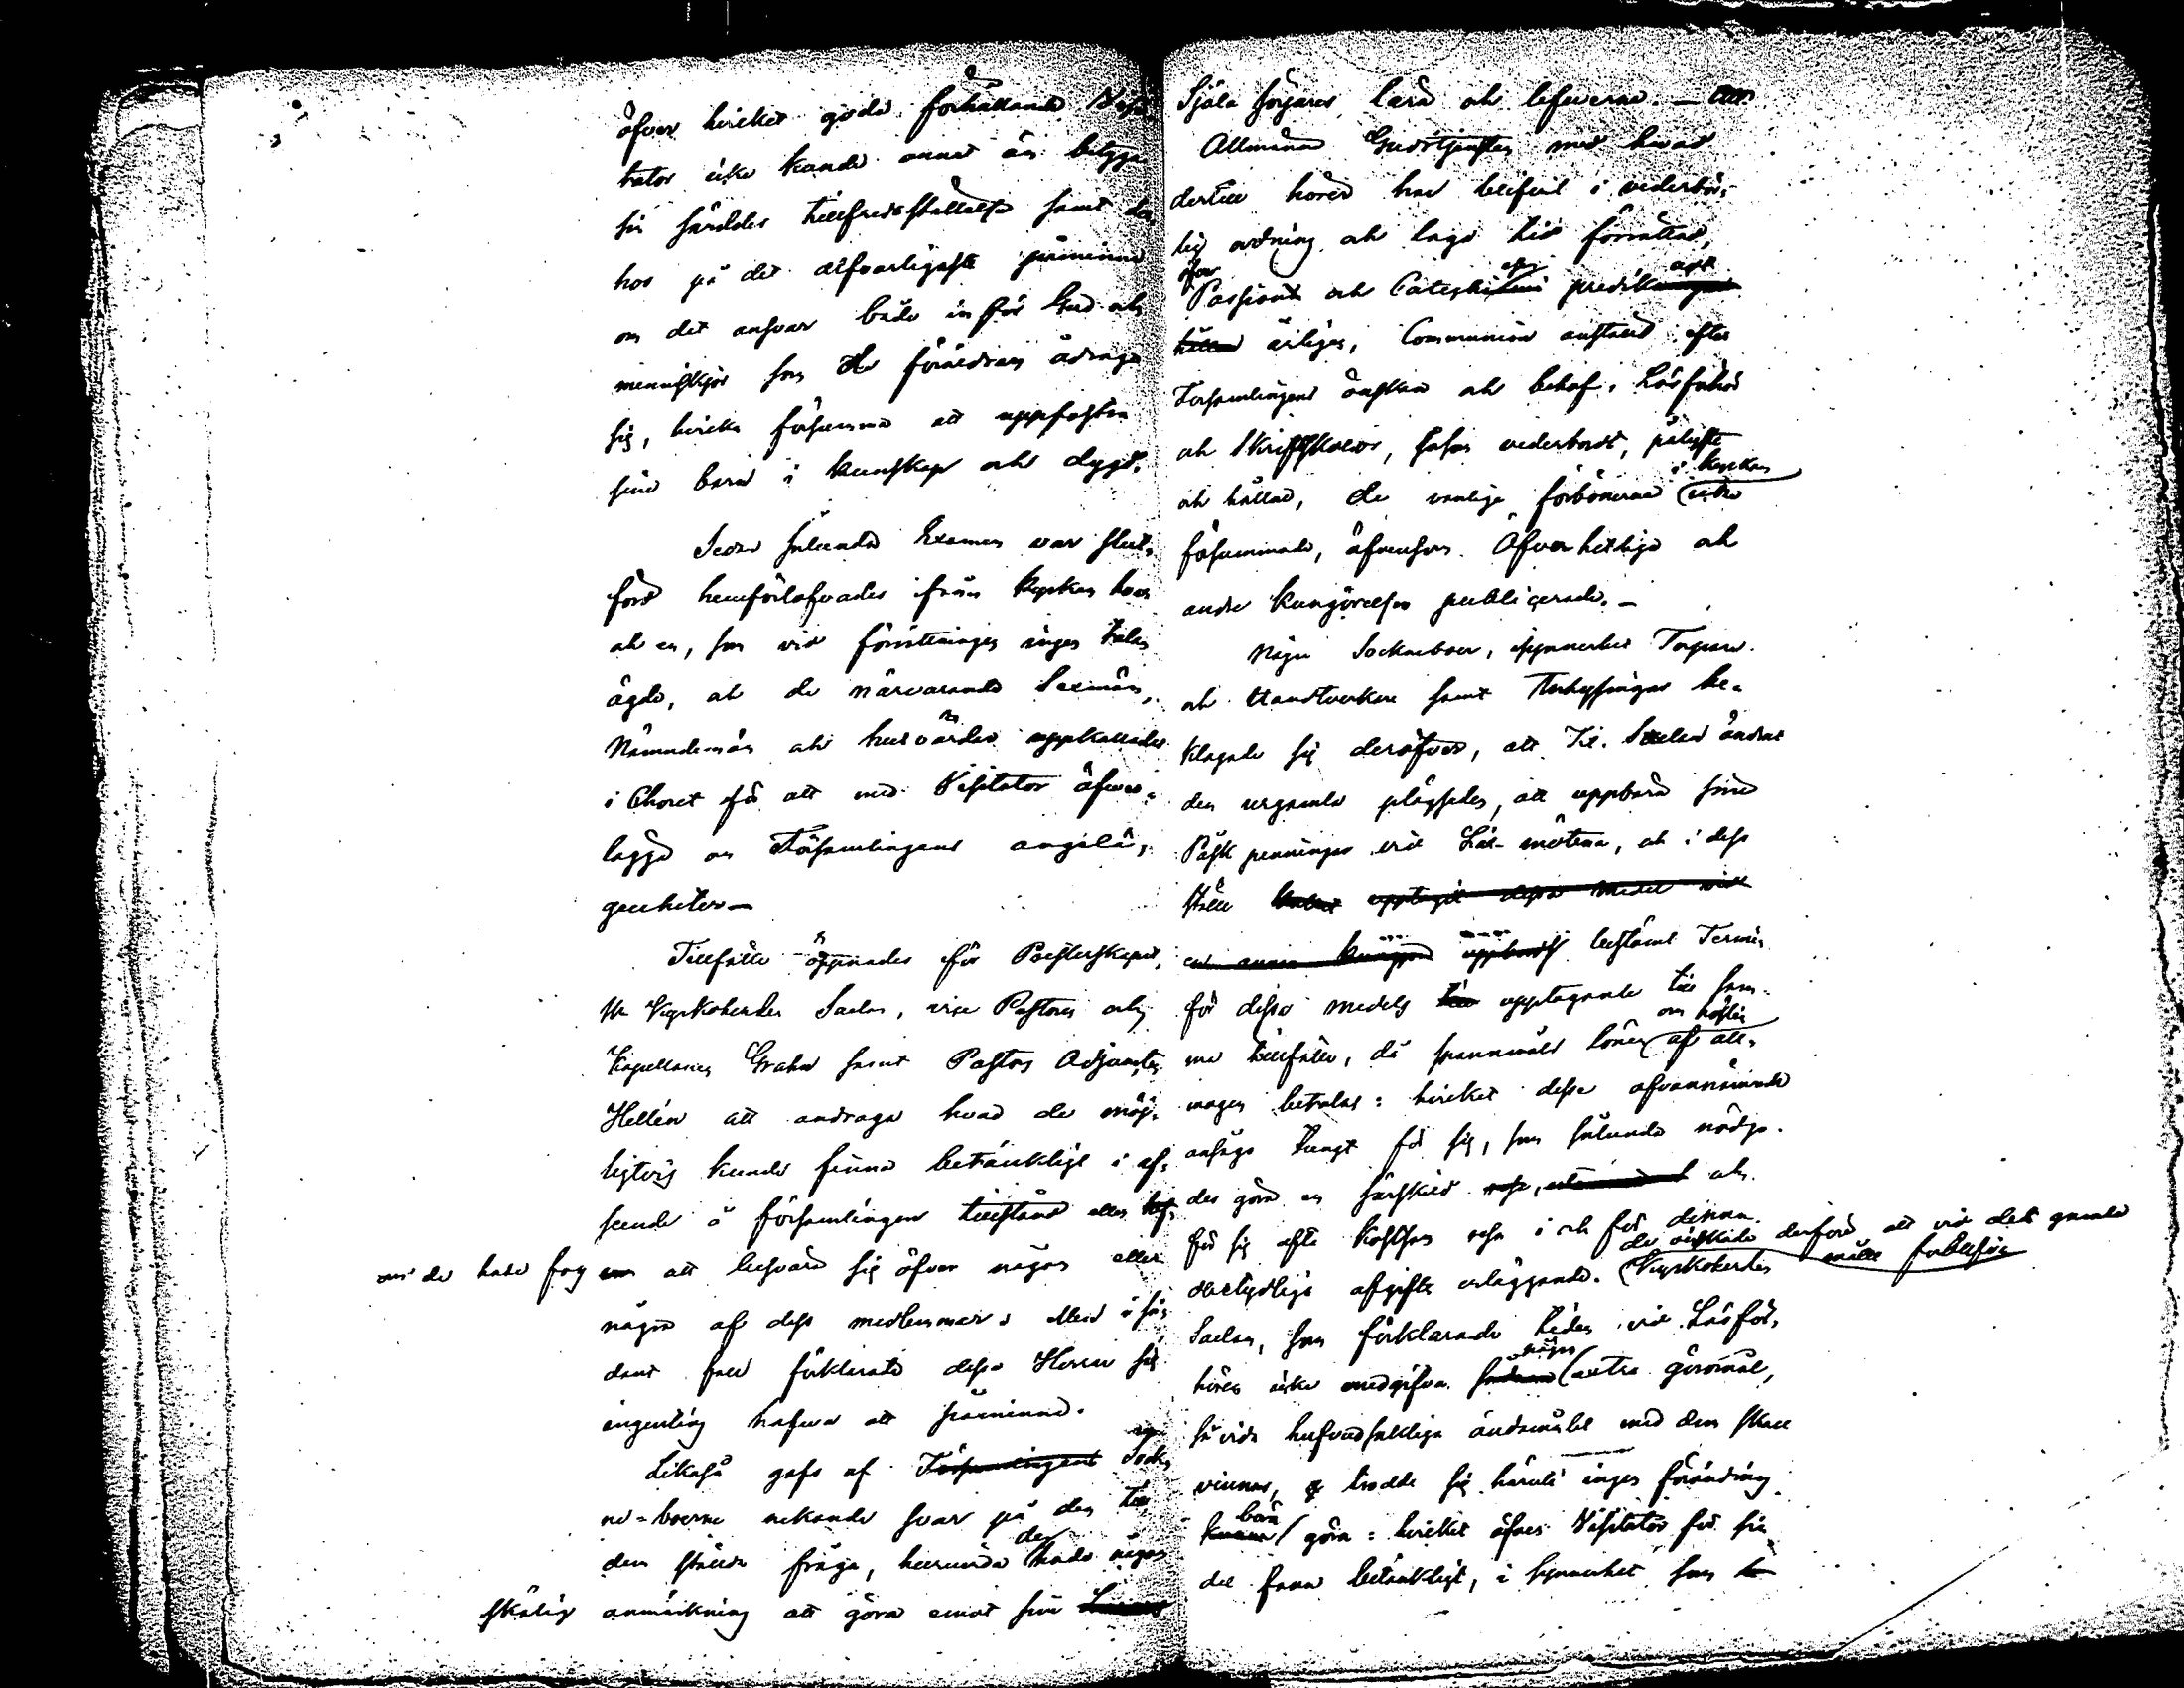 öfver hvilket goda förhållande Visi-
tator icke kunde annat än betyga
sin särdeles tillfredsställelse samt der
hos på det alfvarligaste påminna
om det ansvar både inför Gud och
menniskjor som de föräldrar ådraga
sig, hvilka försumma att uppfostra
sina barn i kunskap och dygd.
Sedan sålunda Examen var slut-
förd hemförlofvades ifrån kyrkan hvar
och en, som vid förrättningen ingen talan
ägde, och de närvarande Sexmän,
Nämndemän och husvärdar uppkallades
i Choret för att med Visitator öfver-
lägga om Församlingens angelä-
genheter —
Tillfälle öppnades för Presterskapet,
Hr Kyrkoherden Saelan, vice Pastoren och
Capellanen Grahn samt Pastors Adjuncten
Hellén att andraga hvad de möj-
ligtvis kunde finna betänkligt i af-
seende å församlingens tillstånd eller
om de hade fog att besvära sig öfver någon eller
några af dess medlemmar. Men i så-
dant fall förklarade dessa Herrar sig
ingenting hafva att påminna.
Likaså gafs af Församlingens Sock-
ne-boerne nekande svar på den till
dem ställda fråga, huruvida de hade någon
skälig anmärkning att göra emot sine
Själasörjares lära och lefverne. —
Allmänna Gudstjensten med hvad
dertill hörer har blifvit i vederbör-
lig ordning och laga tid förrättad,
öfver Passion och Cateches predik
hållen årligen, Communion anställd efter
Församlingens önskan och behof, Läsförhör
och Skriftskolor, såsom vederbordt, pålyste
och hållne, de vanliga förbönerna i kyrkan icke
försummade, äfvensom Öfverhetliga och
andra kungörelser publicerade. —
Några Sockneboer, isynnerhet Torpare
och Handtverkare samt Inhysingar be-
klagade sig deröfver, att Hr. Saelan ändrat
den urgamla plägseden, att uppbära sina
Påsk penningar vid Läs-mötena, och i dess
ställe upptagit dessa medel vid
en annan bestämt Termin
för dessa medels upptagande till sam-
ma tillfälle, då spannmåls lönen om hösten af all-
mogen betalas: hvilket desse ofvannämnde
ansågo tungt för sig, som sålunda nödga-
des göra en särskild och
för sig ofta kostsam resa i och för denna
obetydliga afgifts erläggande. de önskade derföre att vid det gamla måtte förblifva
Kyrkoherden
Saelan, som förklarade tiden vid Läsför-
hören icke medgifva några extra göromål,
så vida hufvudsakliga ändamålet med dem skall
vinnas, trodde sig häruti ingen förändring
böra göra: hvilket äfven Visitator för sin
del fann betänkligt, i synnerhet som